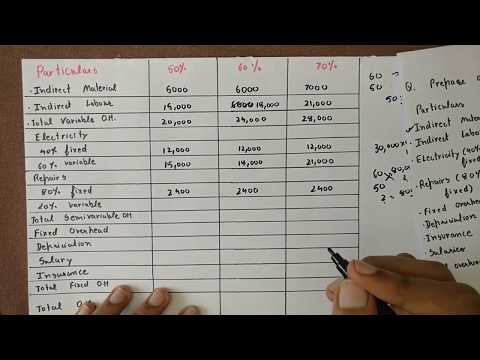 Particulars 50% 60% 70%
Indirect Material 5000 6000 7000
Indirect Labour 15,000 18,000 21,000
Total Variable O.H. 20,000 24,000 28,000
Electricity
40% fixed 12,000 12,000 12,000
60% variable 15,000 18,000 21,000
Repairs
80% fixed 2400 2400 2400
20% variable
Total Semivariable OH
Fixed Overhead
Depriciation
Salary
Insurance
Total Fixed O.H
Total
60
50
50
30,000x
60 x 80,0
50
Q. Prepare
Particulars
Indirect Material
Indirect Labo
Electricity (40%
fixed
Repairs (80%
fixed)
Fixed overhead
Depriciation
Insurance
Salaries